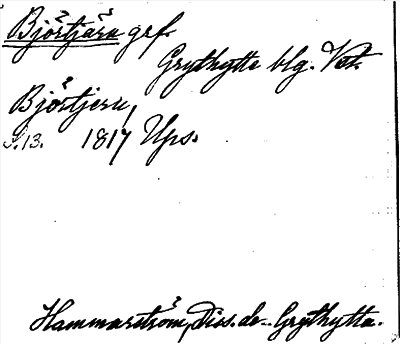 Björtjärn grf.
Grythytte blg. Vstm.
Björtjern,
S. 13. 1817 Ups.
Hammarström, Diss. de Grythytta.